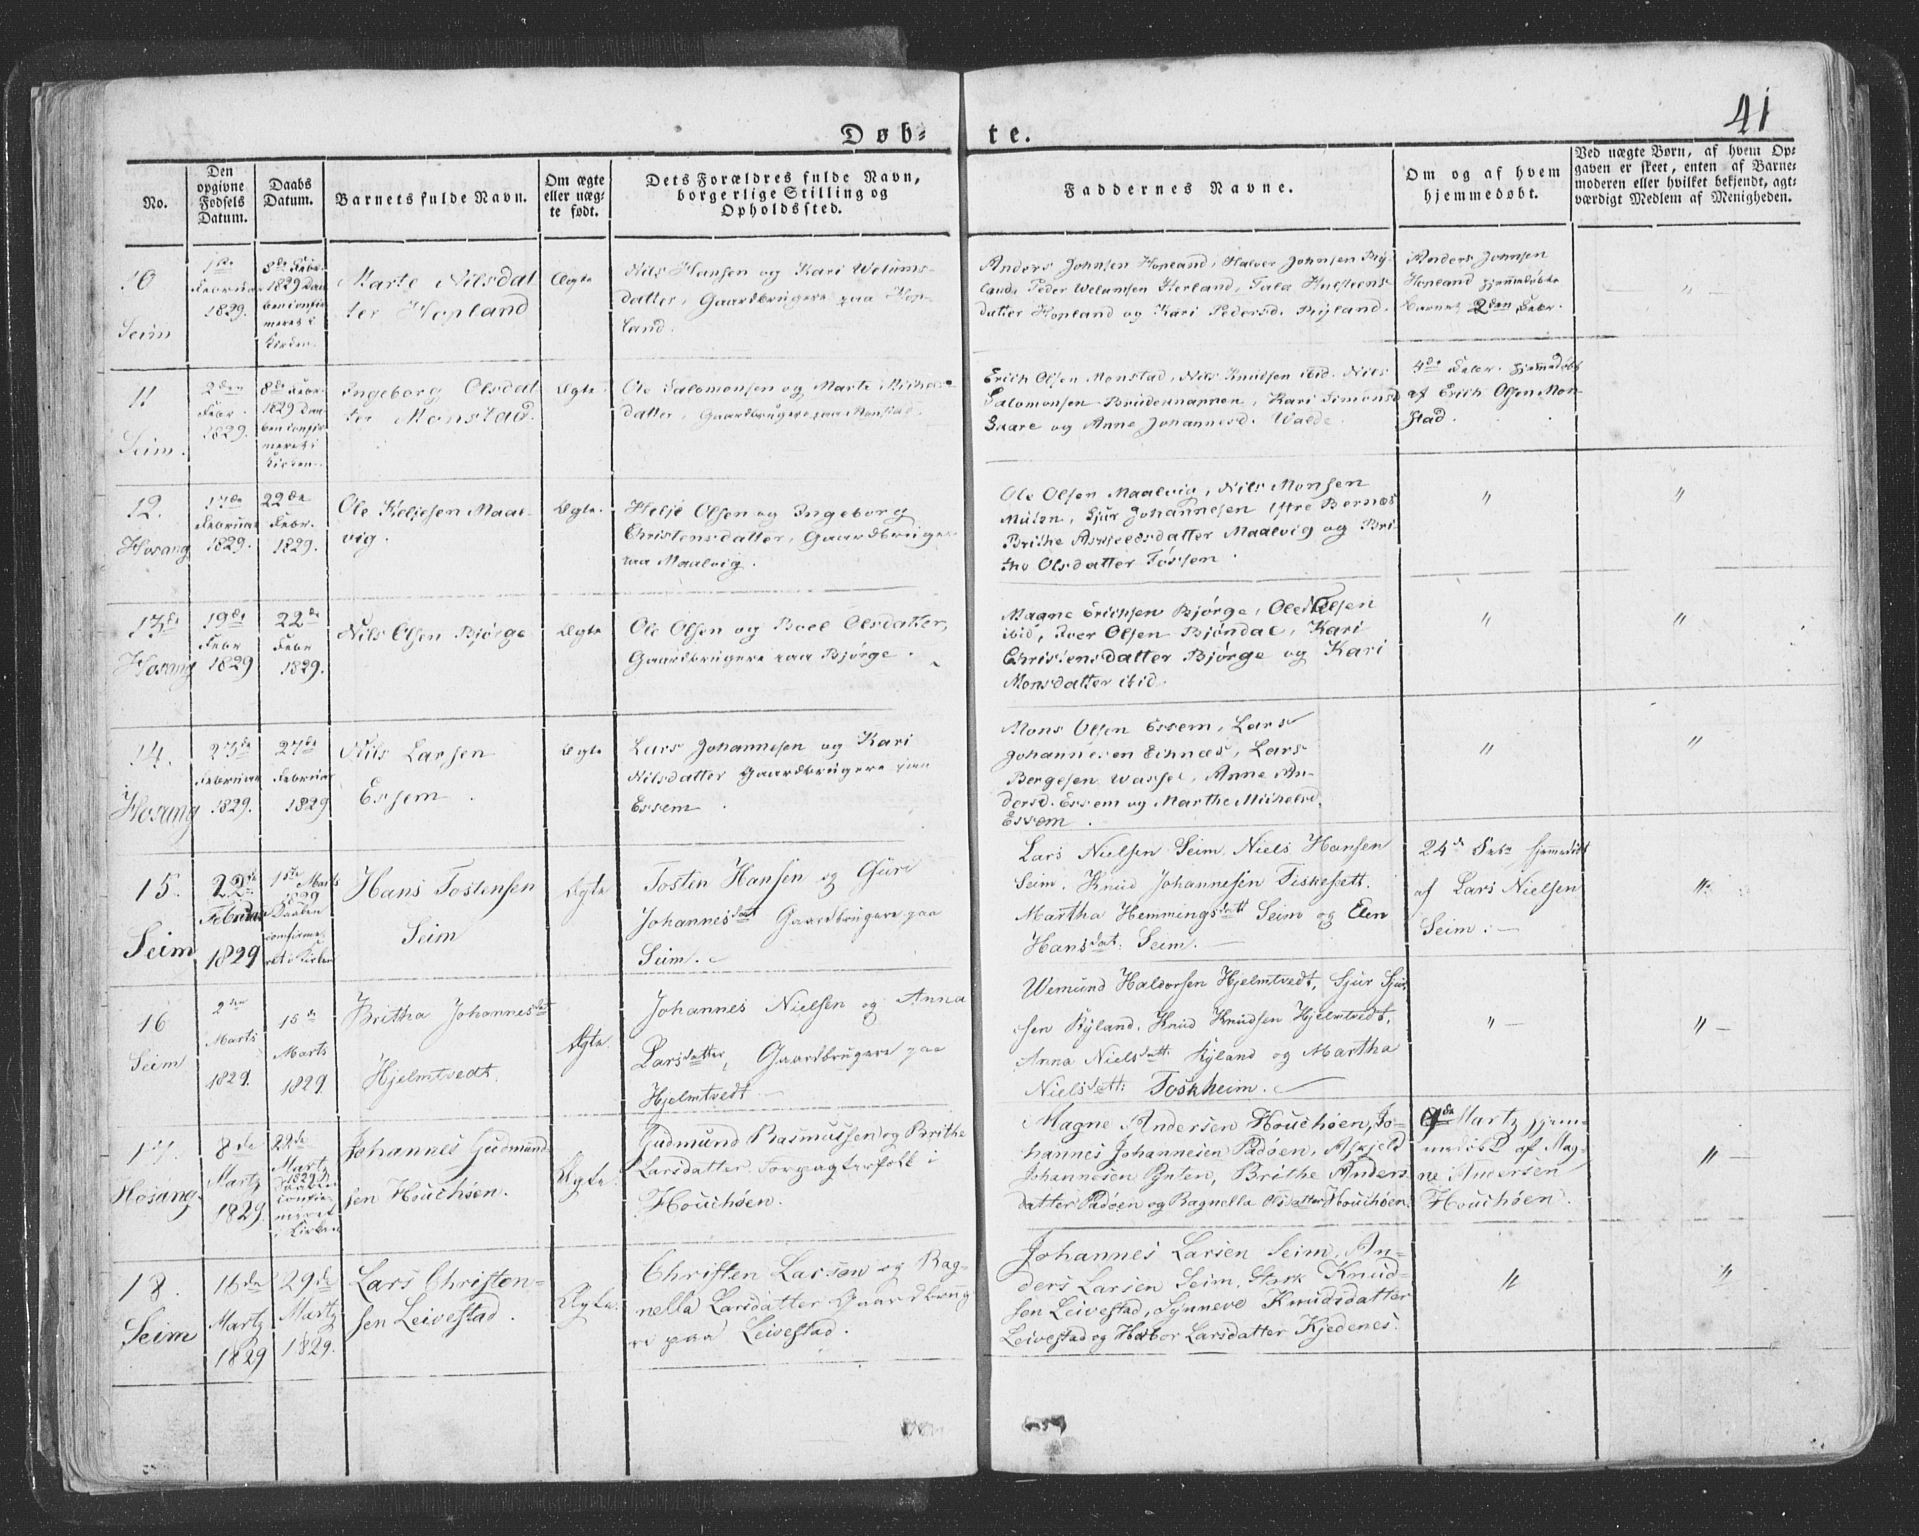 41
Døb-
te.
No.
Den
opgivne
Fødsels
Datum.
Daabs
Datum.
Barnets fulde Navn.
Om ægte
eller uæg-
te født.
Dets Forældres fulde Navn,
borgerlige Stilling og
Opholdssted.
Faddernes Navne.
Om og af hvem
hjemmedøbt.
Ved uægte Børn, af hvem Op-
gaven er skeet, enten af Barne-
moderen eller hvilket bekjendt, agt-
værdigt Medlem af Menigheden.
10
Seim
1ste
Februar
1829.
8de Febr.
1829 Daa
ben confir
meret i
Kirken.
Marte Nilsdat
ter Hopland
Ægte
Nils Hansen og Kari Welums-
datter, Gaardbrugere paa Hop-
land.
Anders Johnsen Hopland, Halver Johnsen Ry-
land, Peder Welumsen Herland,
datter Hopland og Kari Pedersd. Ryland.
Anders Johnsen
Hopland hjemmedøbte
barnet 2den Febr.
"
11
Seim.
2den
Febr.
1829.
8de Febr
1829 Daa
ben confir
meret i
Kirken.
Ingeborg Olsdat
ter Monstad.
Ægte.
Ole Salomonsen og Marte Michels
datter, Gaardbrugere paa Monstad.
Erich Olsen Monstad, Nils Knudsen ibid. Nils
Salomonsen Kari Simonsd
og Anne Johannesd. Walde.
4de Febr. hjemmedøbt
af Erich Olsen Mon
stad.
12.
Hosang
17de
Februar
1829.
22de
Febr.
1829.
Ole Heljesen Maal
vig.
Ægte.
Helje Olsen og Ingeborg
Christensdatter, Gaardbruger
paa Maalvig.
Ole Olsen Maalvig, Nils Monsen
Mulen, Sjur Johannesen Bernæs
Brithe datter Maalvig og Bri
the Olsdatter Fossen.
"
"
13de
Hosang
19de
Febr
1829
22de
Febr
1829.
Nils Olsen Bjørge
Ægte
Ole Olsen og Boel Olsdatter,
Gaardbrugere paa Bjørge.
Magne Erichsen Bjørge, Ole Olsen
ibid, Iver Olsen Bjøndal, Kari
Christensdatter Bjørge og Kari
Monsdatter ibid.
"
"
14.
Hosang
23de
Februar
1829.
27de
Februar
1829
Nils Larsen
Essem.
Ægte
Lars Johannesen og Kari
Nilsdatter Gaardbrugere paa
Essem
Mons Olsen Essem, Lars
Johannesen Eihnæs, Lars
Børgesen Anne An-
dersd. Essem og Marthe Michelsd.
Essem.
"
"
15.
Seim
22de
Februar
1829
1ste Marts
1829
Daaben
confirme
ret i Kirken
Hans Tostensen
Seim
Ægte
Tosten Hansen og Guri
Johannesdat Gaardbrugere paa
Seim.
Lars Nielsen Seim. Niels Hansen
Seim. Knud Johannesen Fiskesætt.
Martha Hemmingsdatt Seim og Elen
Hansdat. Seim. —
24de Febr hjemmedøbt
af Lars Nielsen
Seim. —
"
16
Seim
2den
Marts
1829.
15de
Marts
1829
Britha Johannesdat
Hjelmtvedt.
Ægte.
Johannes Nielsen og Anna
Larsdatter, Gaardbrugere paa
Hjelmtvedt
Wemund Haldorsen Hjelmtvedt, Sjur Sjur
sen Ryland, Knud Knudsen Hjelmtvedt,
Anna Nielsdatt. Ryland og Martha
Nielsdatt. Toskheim.
" —
" —
17.
Hosang.
8de
Martz
1829.
22de
Martz
1829 D
aaben
confir
meret
i Kirken
Johannes Gudmund
sen Houchøen.
Ægte.
Gudmund Rasmussen og Brithe
Larsdatter Forpagterfolk i
Houchøen.
Magne Andersen Houchøen, Jo-
hannes Johannesen Padøen, Askjeld
Johannesen Ynten, Brithe Anders
datter Padøen og Ragnella Olsdatter Houchøen.
9de Martz hjem-
medøbt af Mag-
ne Andersen
Houchøen.
" —
18.
Seim
16de
Martz
1829
29de
Martz
1829.
Lars Christen-
sen Leivestad.
Ægte.
Christen Larsen og Rag-
nella Larsdatter Gaardbrug
re paa Leivestad.
Johannes Larsen Seim, An-
ders Larsen Seim, Stark Knud-
sen Leivestad, Synneve Knudsdatter
Leivestad og Habor Larsdatter Kjedenes.
"
"